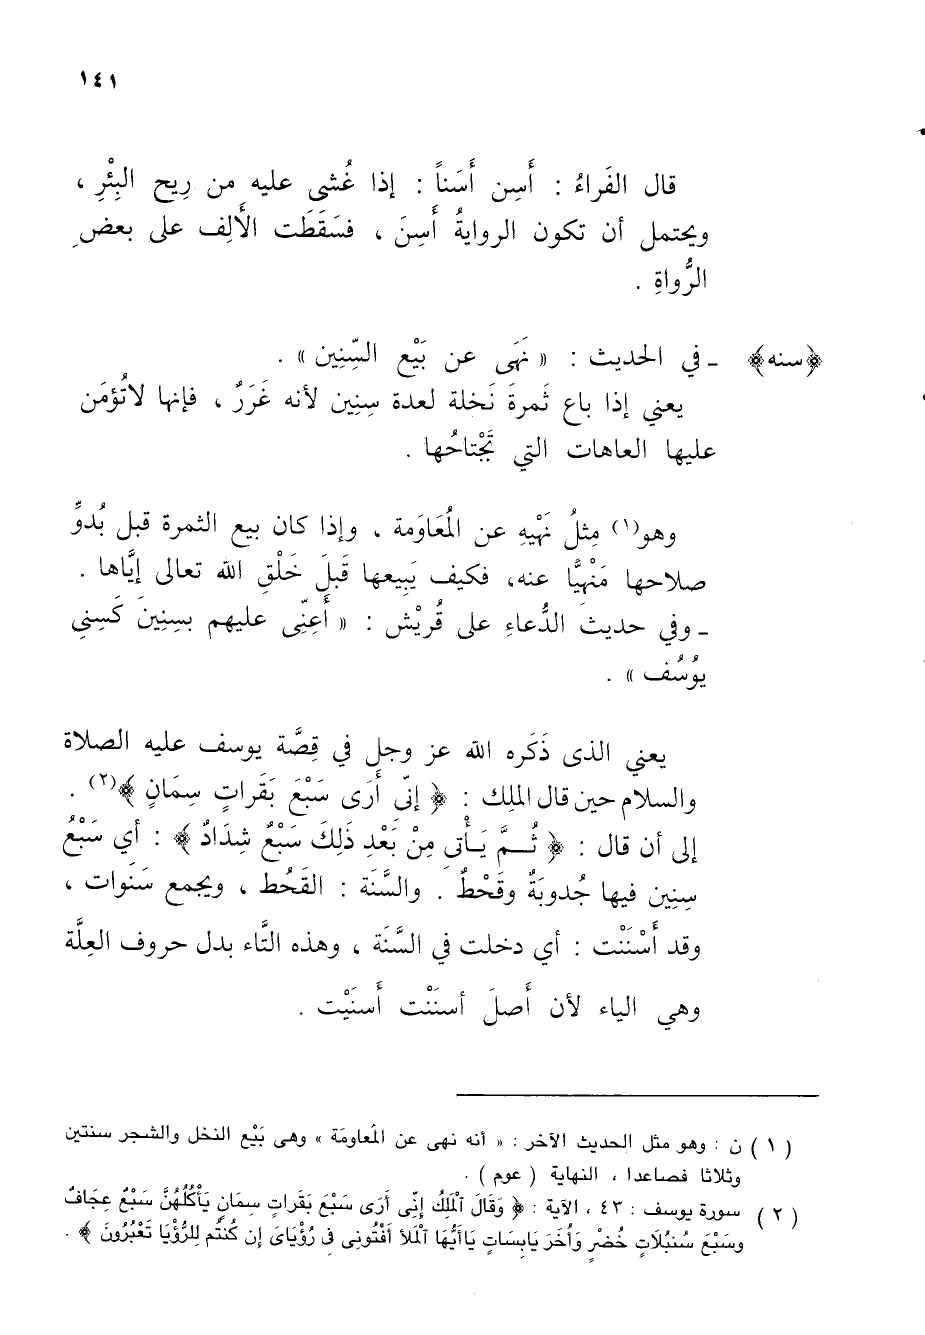 ١٤١
قال الفَراءُ : أَسِن أَسَناً : إذا غُشى عليه من رِيح البِئْرِ ،
ويحتمل أن تكون الروايةُ أَسِنَ ، فسَقَطَت الأَلِف على بعضِ
الرُّواةِ .
﴿سنه﴾ ـ في الحديث : « نَهَى عن بَيْع السِّنِين » .
يعني إذا باع ثَمرةَ نَخلة لعدة سِنِين لأنه غَرَرٌ ، فإنها لاتُؤمَن
عليها العاهات التي تَجْتاحُها .
وهو(١) مِثلُ نَهْيِهِ عن المُعَاوَمة ، وإذا كان بيع الثمرة قبل بُدوِّ
صلاحها مَنْهِيًّا عنه، فكيف يَبِيعها قَبلَ خَلْقِ الله تعالى إيَّاها .
ـ وفي حديث الدُّعاءِ على قُريْش : « أَعِنِّى عليهم بسِنِينَ كَسِنِي
يوُسُف » .
يعني الذى ذَكَره الله عز وجل في قِصَّة يوسف عليه الصلاة
والسلام حين قال الملِك : ﴿ إنِّى أَرَى سَبْعَ بَقَراتٍ سِمَانٍ ﴾(٢) .
إلى أن قال : ﴿ ثُـمَّ يَـأْتى مِنْ بَعْدِ ذَلِكَ سَبْعٌ شِدَادٌ ﴾ : أي سَبْعُ
سِنِين فيها جُدوبَةٌ وقَحْطٌ . والسَّنَة : القَحْط ، ويجمع سَنَوات ،
وقد أَسْنَنْت : أي دخلت في السَّنَة ، وهذه التَّاء بدل حروف العِلَّة
وهي الياء لأن أَصلَ أسنَنْت أَسنَيْت .
( ١ ) ن : وهو مثل الحديث الآخر : « أنه نهى عن المُعاومَة » وهى بَيْع النخل والشجر سنتين
وثلاثا فصاعدا ، النهاية ( عوم ) .
( ٢ ) سورة يوسف : ٤٣ ، الآية : ﴿ وَقَالَ ٱلْمَلِكُ إِنِّى أَرَى سَبْعَ بَقَراتٍ سِمَانٍ يَأْكُلُهُنَّ سَبْعٌ عِجَافٌ
وسَبْعَ سُنبُلَاتٍ خُضْرٍ وَأُخَرَ يَابِسَاتٍ يَاأَيُّهَا ٱلْمَلأ أَفْتُونِى فِى رُؤْيَاىَ إِن كُنتُم لِلرُّؤْيَا تَعْبُرُونَ ﴾ .